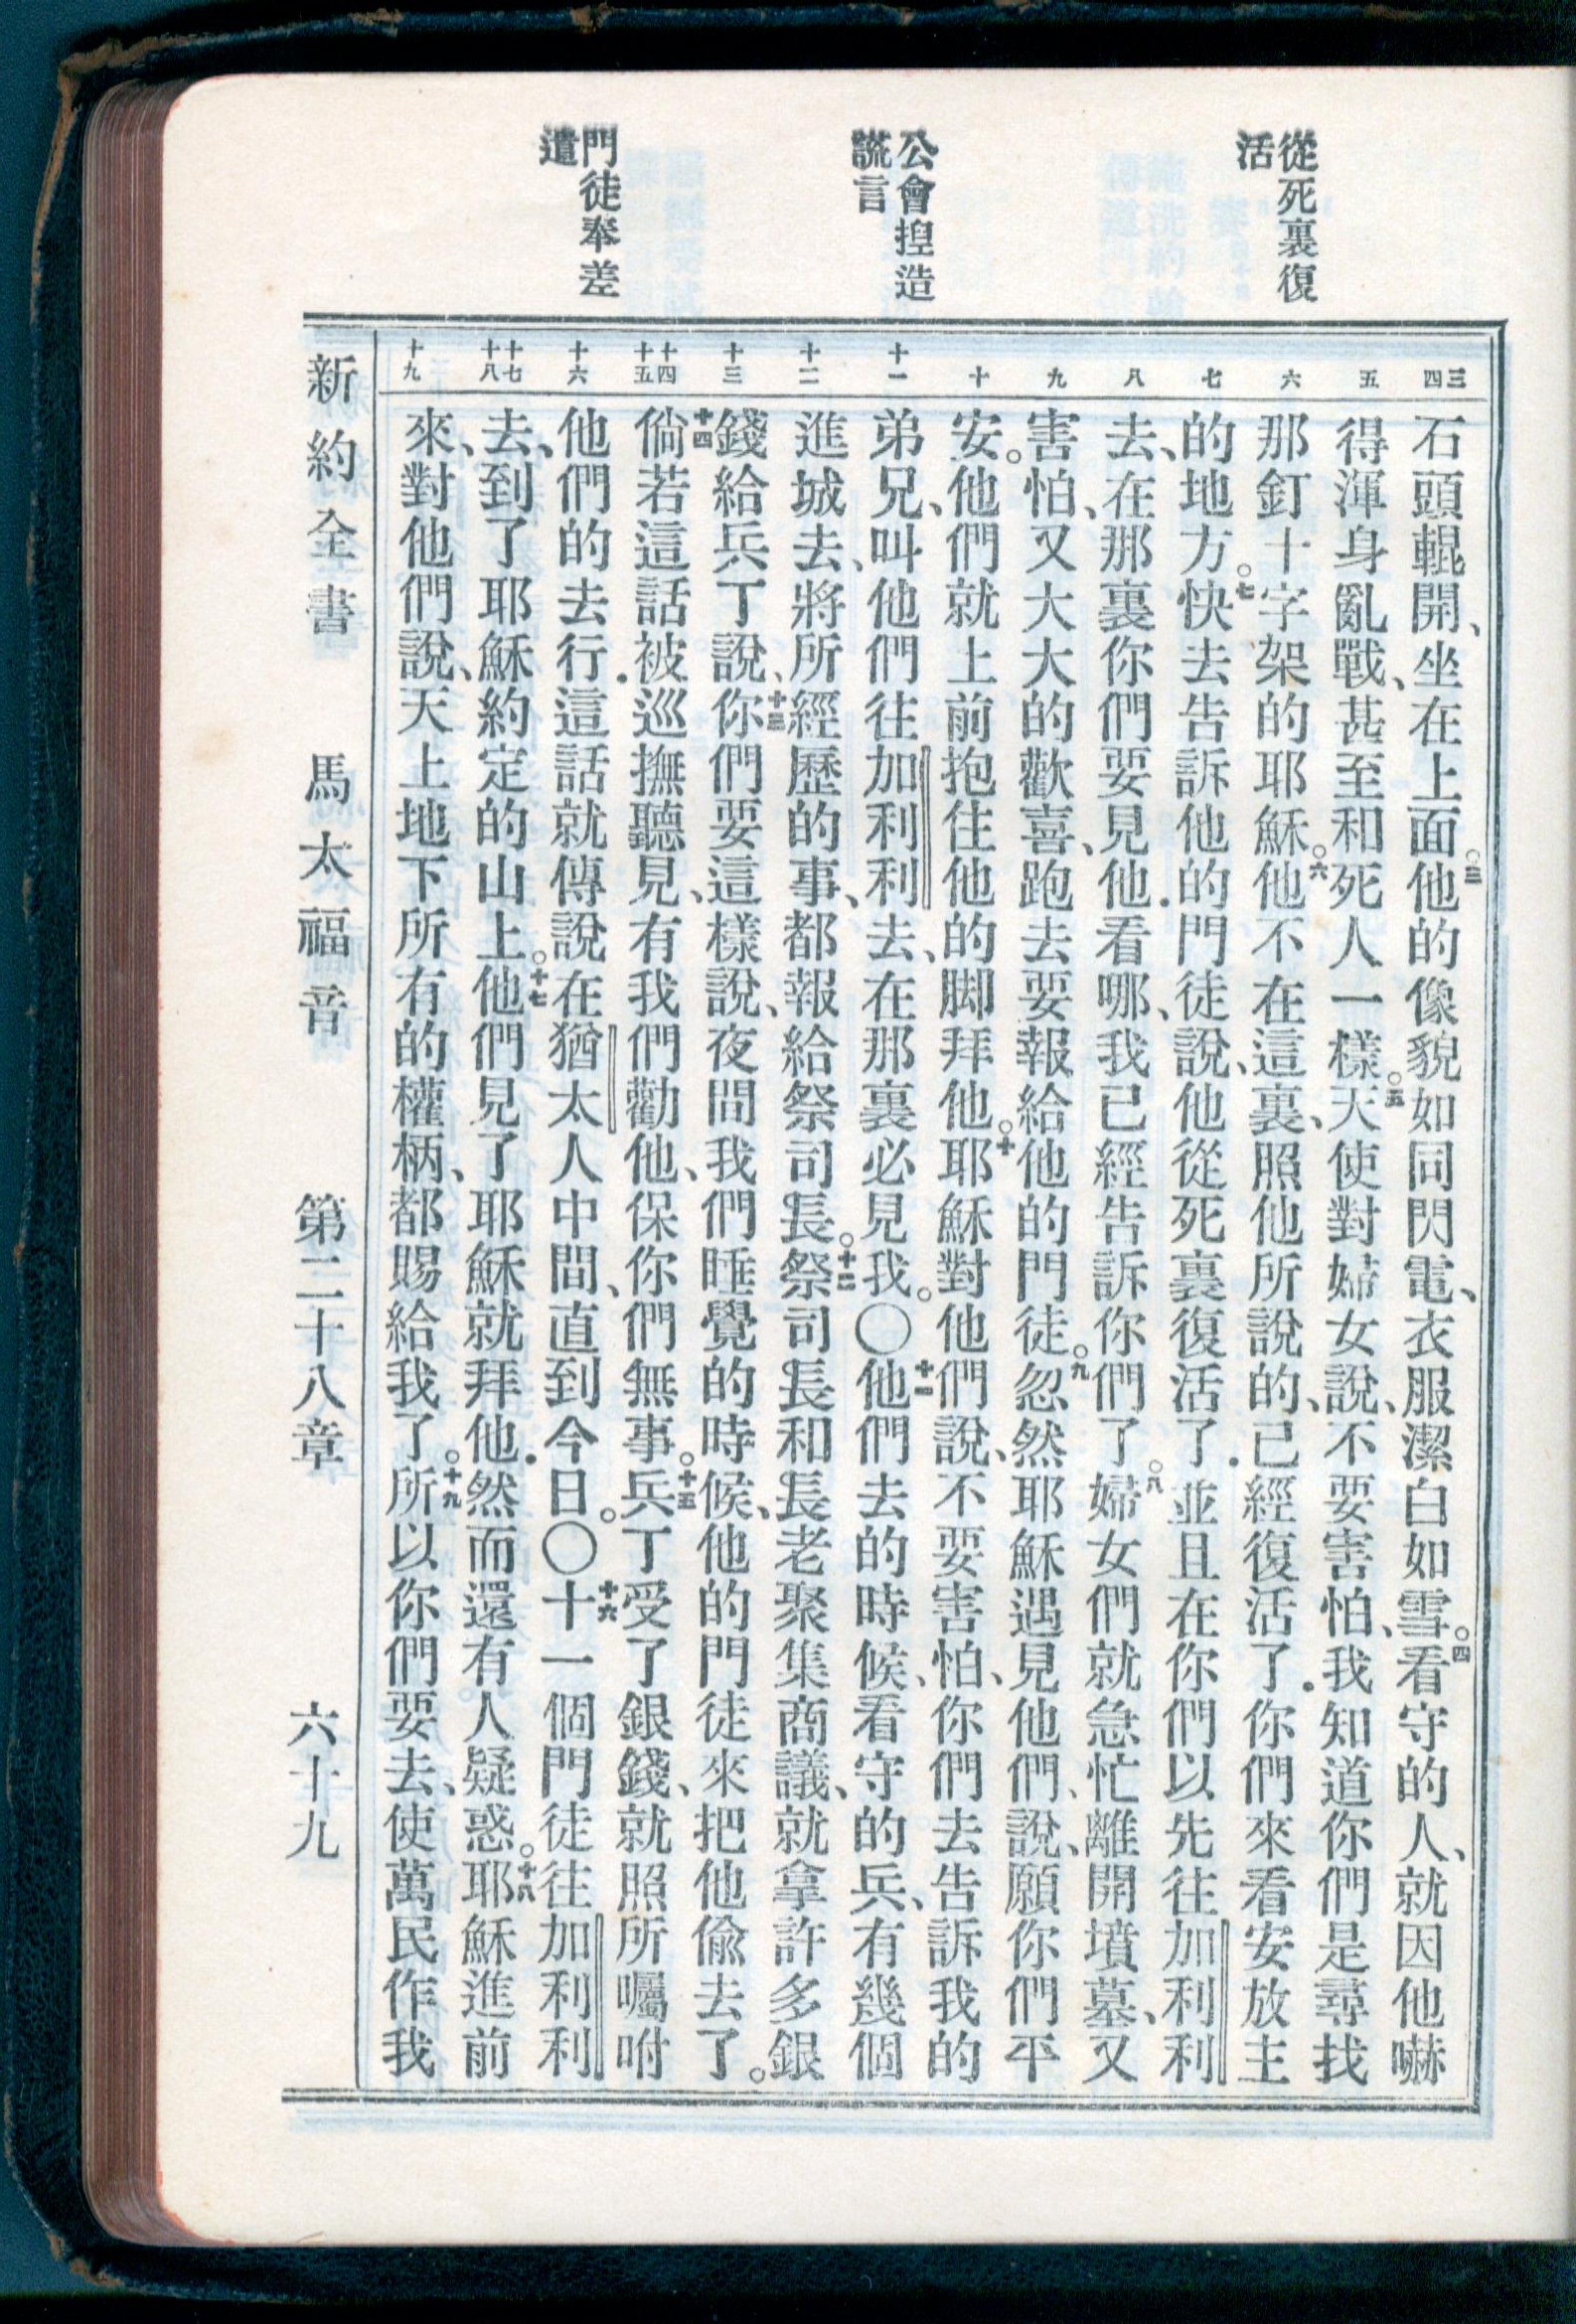 從死裏復
活
公會揑造
謊言
門徒奉差
遣
三 四 五 六 七 八 九 十 十一 十二 十三 十四 十五 十六 十七 十八 十九
石頭輥開、坐在上面。三他的像貌如同閃電、衣服潔白如雪。四看守的人、就因他嚇
得渾身亂戰、甚至和死人一樣。五天使對婦女說、不要害怕、我知道你們是尋找
那釘十字架的耶穌。六他不在這裏、照他所說的、已經復活了．你們來看安放主
的地方。七快去告訴他的門徒說、他從死裏復活了．並且在你們以先往加利利
去、在那裏你們要見他．看哪、我已經告訴你們了。八婦女們就急忙離開墳墓、又
害怕、又大大的歡喜、跑去要報給他的門徒。九忽然耶穌遇見他們、說、願你們平
安。他們就上前抱住他的脚拜他。十耶穌對他們說、不要害怕、你們去告訴我的
弟兄、叫他們往加利利去、在那裏必見我。〇十一他們去的時候、看守的兵、有幾個
進城去、將所經歷的事、都報給祭司長。十二祭司長和長老聚集商議、就拿許多銀
錢給兵丁說、十三你們要這樣說、夜間我們睡覺的時候、他的門徒來把他偷去了。
十四倘若這話被巡撫聽見、有我們勸他、保你們無事。十五兵丁受了銀錢、就照所囑咐
他們的去行．這話就傳說在猶太人中間、直到今日。〇十六十一個門徒往加利利
去、到了耶穌約定的山上。十七他們見了耶穌就拜他．然而還有人疑惑。十八耶穌進前
來、對他們說、天上地下所有的權柄、都賜給我了。十九所以你們要去、使萬民作我
新約全書 馬太福音 第二十八章 六十九